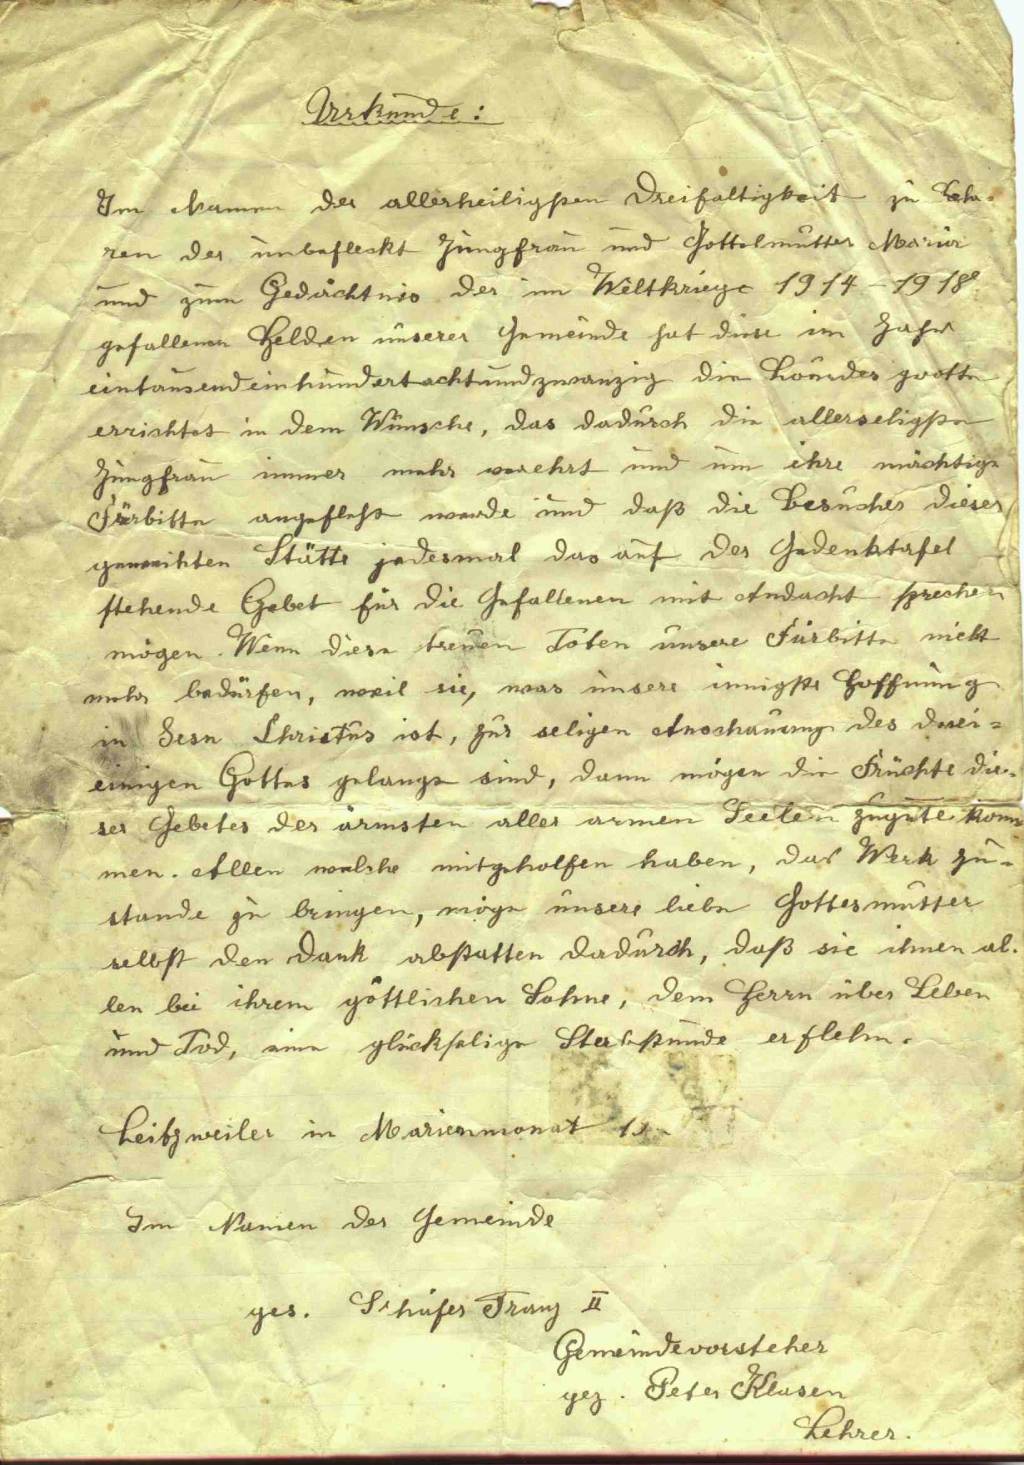 Urkunde:
Im Namen der allerheiligsten Dreifaltigkeit zu Eh-
ren der unbefleckt Jungfrau und Gottelmutter Maria
und zum Gedächtnis der im Weltkriege 1914-1918
gefallenen Helden unserer Gemeinde hat diese im Jahre
eintausendeinhundertachtundzwanzig die Lourdes grotte
errichtet in dem Wunsche, das dadurch die allerseligste
Jungfrau immer mehr verehrt und um ihre mächtige
Fürbitte angefleht werde und daß die Besucher dieser
geweihten Stätte jedesmal das auf der Gedenktafel
stehende Gebet für die Gefallenen mit Andacht sprechen
mögen. Wenn diese treuen Toten unsere Fürbitte nicht
mehr bedürfen, weil sie, was unsere innigste Hoffnung
in Jesu Christus ist, zur seligen Anschauung des drei=
einigen Gottes gelangt sind, dann mögen die Früchte die-
ser Gebetes der ärmsten aller armen Seelen zugute kom
men. Allen welche mitgeholfen haben, das Werk zu-
stande zu bringen, möge unsere liebe Gottesmutter
selbst den Dank abstatten dadurch, daß sie ihnen al-
len bei ihrem göttlichen Sohne, dem Herrn über Leben
und Tod, eine glückselige Sterbstunde erflehn.
Leitzweiler in Marienmonat
Im Namen der Gemeinde
ges. Schäfer Franz II
Gemeindevorsteher
gez. Peter Klasen
Lehrer.